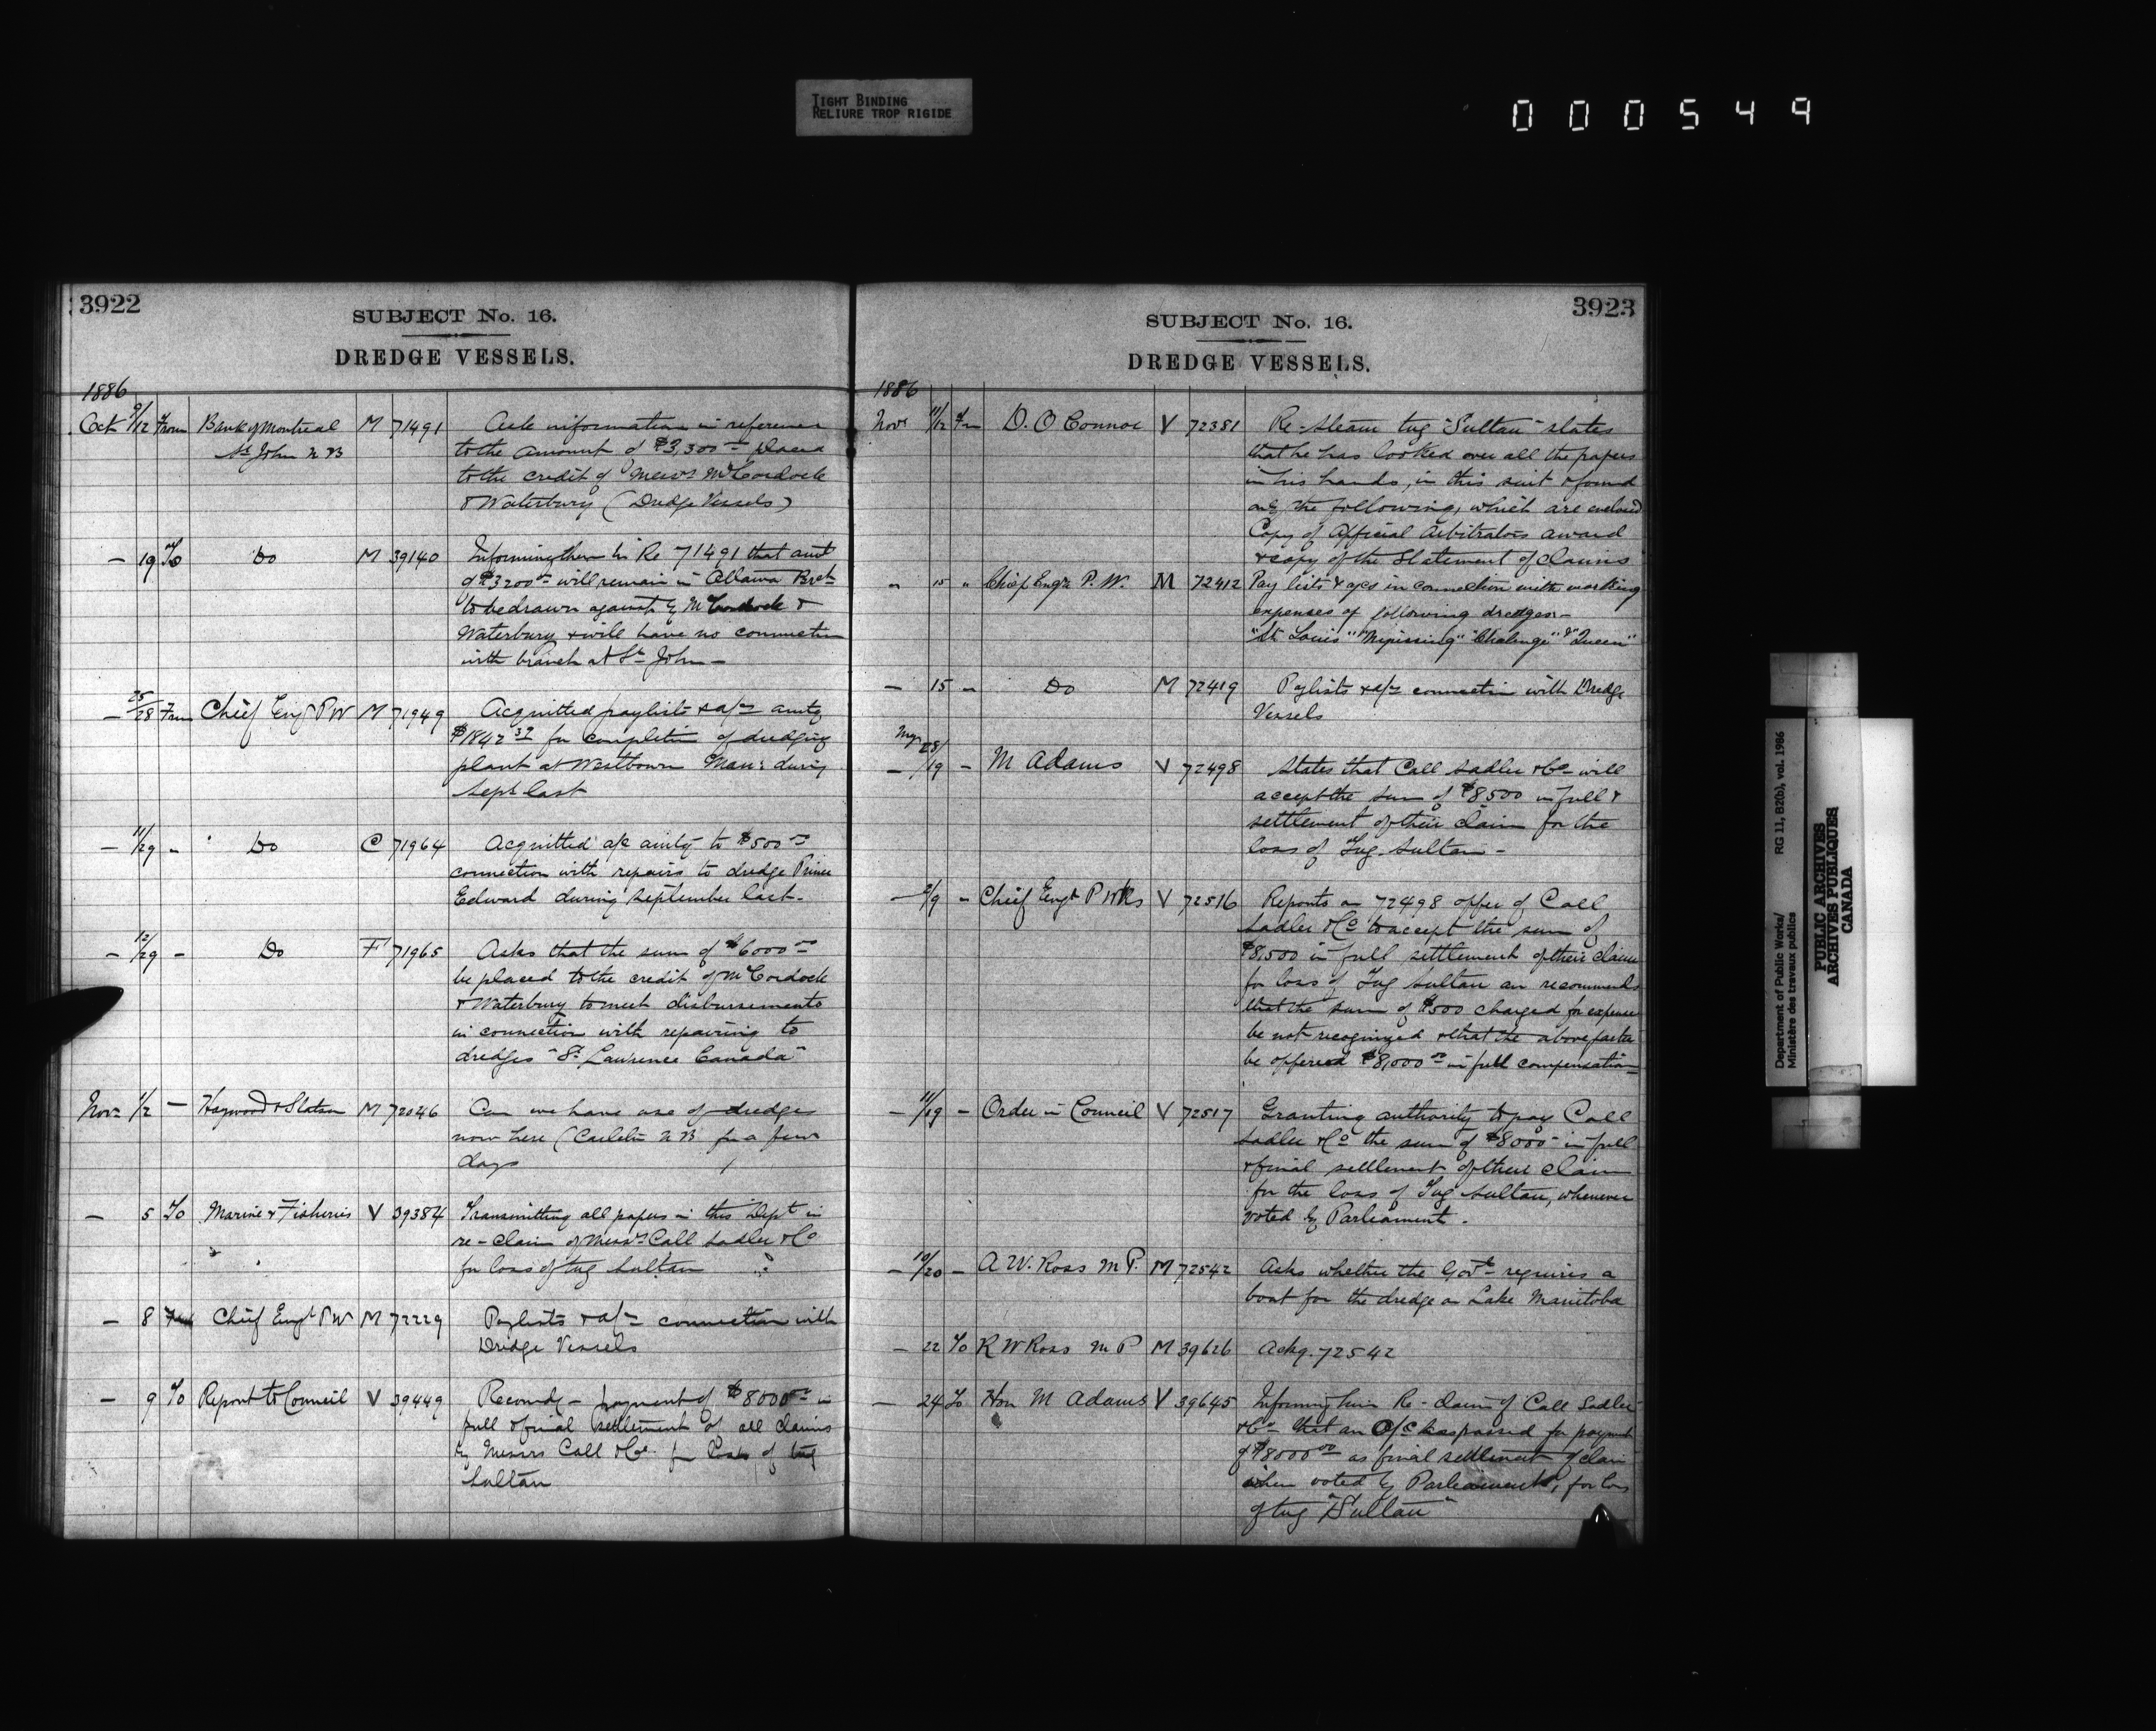 TIGHT BINDING
RELIURE TROP RIGIDE
000549
3922
SUBJECT No. 16.
DREDGE VESSELS.
1886
Oct 9/12 From Bank of Montreal M 71491 Ask information in reference
St John N B to the amount of $3,300 placed
to the credit of Messrs McCordock
& Waterbury (Dredge Vessels)
— 19 To Do M 39140 Informing them in Re 71491 that amt
of $3200 will remain in Ottawa
to be drawn against by McCordock &
Waterbury & will have no connection
with branch at St John —
— 25/28 From Chief Engr P W M 71949 Acquitted paylists & a/cs amtg
$1842 37 for completion of dredging
plant at Westbourn Man: during
Sept last
— 11/29 - Do C 71964 Acquitted a/c amtg to $500
connection with repairs to dredge Prince
Edward during September last.
— 12/29 - Do F 71965 Asks that the sum of $6000
be placed to the credit of McCordock
& Waterbury to meet disbursements
in connection with repairing to
dredges "St Lawrence Canada"
Nov 11/2 — Haywood & M 72046 Can we have use of dredge
now here (Carleton N B for a few
days
— 5 To Marine & Fisheries V 39384 Transmitting all papers in this Dept in
re-claim of Messrs Call Sadler & Co
for loss of tug Sultan
— 8 Chief Engr P W M 72229 Paylists & a/cs connection with
Dredge Vessels
— 9 To Report to Council V 39449 Recomdg — payment of $8000 in
full & final settlement of all claims
by Messrs Call & Co. for loss of tug
Sultan
3923
SUBJECT No. 16.
DREDGE VESSELS.
1886
Nov 11/12 Fm D. O Connor V 72381 Re-Steam tug "Sultan" states
that he has looked over all the papers
in his hands, in this suit & found
only the following, which are enclosed
Copy of Official Arbitrators award
& copy of the Statement of Claims
" 15 " Chief Engr P. W. M 72412 Pay lists & a/cs in connection with working
expenses of following dredges—
"St Louis" "Nipissing" "Challenge" & "Queen"
— 15 — Do M 72419 Paylists & a/cs connection with Dredge
Vessels
— /19 — M Adams V 72498 States that Call Sadler & Co will
accept the sum of $8500 in full &
settlement of their claim for the
loss of Tug Sultan —
— 2/9 — Chief Engr P Wks V 72516 Reports on 72498 offer of Call
Sadler & Co to accept the sum of
$8,500 in full settlement of their claim
for loss of Tug Sultan an recommends
that the sum of $500 charged for expense
be not recognized & that the above parties
be offered $8,000 in full compensation
— 11/19 — Order in Council V 72517 Granting authority to pay Call
Sadler & Co the sum of $8000 in full
& final settlement of their claim
for the loss of Tug Sultan, whenever
voted by Parliament.
— 10/20 — A W. Ross M P. M 72542 Asks whether the Govt requires a
boat for the dredge on Lake Manitoba
— 22 To R W Ross M P M 39626 Ackg. 72542
— 24 To Hon M Adams V 39645 Informing him Re-claim of Call Sadler
& Co that an O/C has passed for payment
of $8000 00 as final settlement of claim
when voted by Parliament, for loss
of tug "Sultan"
Department of Public Works/ RG 11, B2(b), vol. 1986
Ministère des travaux publics
PUBLIC ARCHIVES
ARCHIVES PUBLIQUES
CANADA